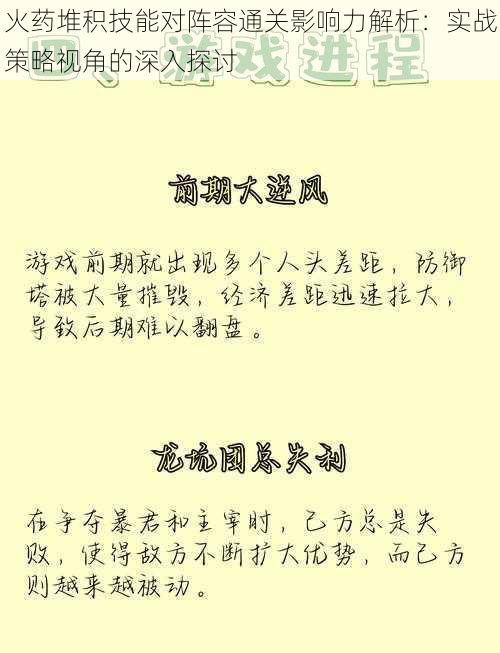 火药堆积技能对阵容通关影响力解析：实战
策略视角的深入探讨
四、游戏进程
前期大逆风
游戏前期就出现多个人头差距，防御
塔被大量摧毁，经济差距迅速拉大，
导致后期难以翻盘。
龙坑团总失利
在争夺暴君和主宰时，己方总是失
败，使得敌方不断扩大优势，而己方
则越来越被动。